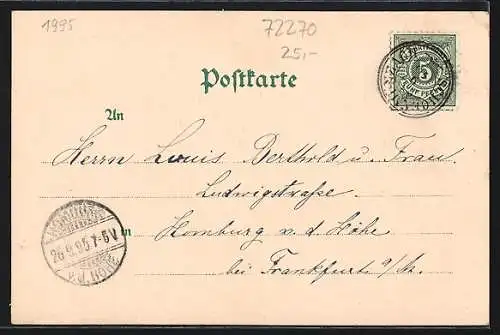 1995
72270
25,-
5
FÜNF PFENNIG
Postkarte
An
Herrn Louis Berthold u. Frau
Ludwigstrasse
in Homburg v. d. Höhe
bei Frankfurt a/M.
HOMBURG
26.9.95.7-8V
v.d.HÖHE